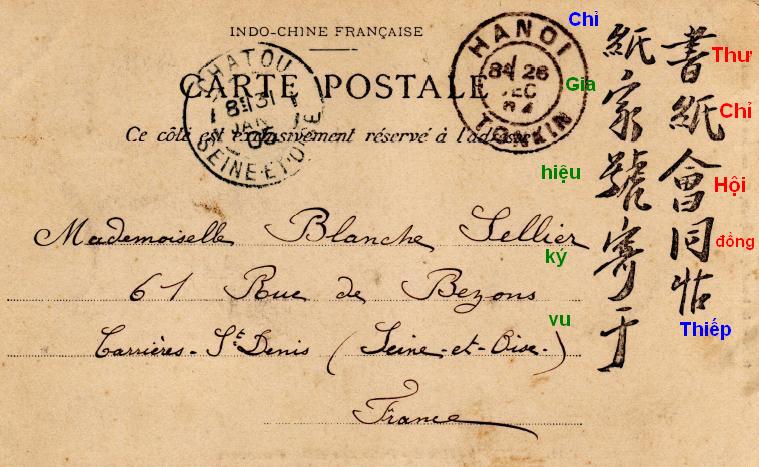 INDO-CHINE FRANÇAISE
CARTE POSTALE
Ce côté est exclusivement réservé à l'adresse
HANOI
26
DEC
TONKIN
CHATOU
31
JAN
SEINE-ET-OISE
Mademoiselle Blanche Sellier
61 Rue de Bezons
Carrières-St Denis (Seine-et-Oise.)
France
書紙會同帖
紙家號寄于
Thư
Chỉ
Hội
đồng
Thiếp
Chỉ
Gia
hiệu
ký
vu